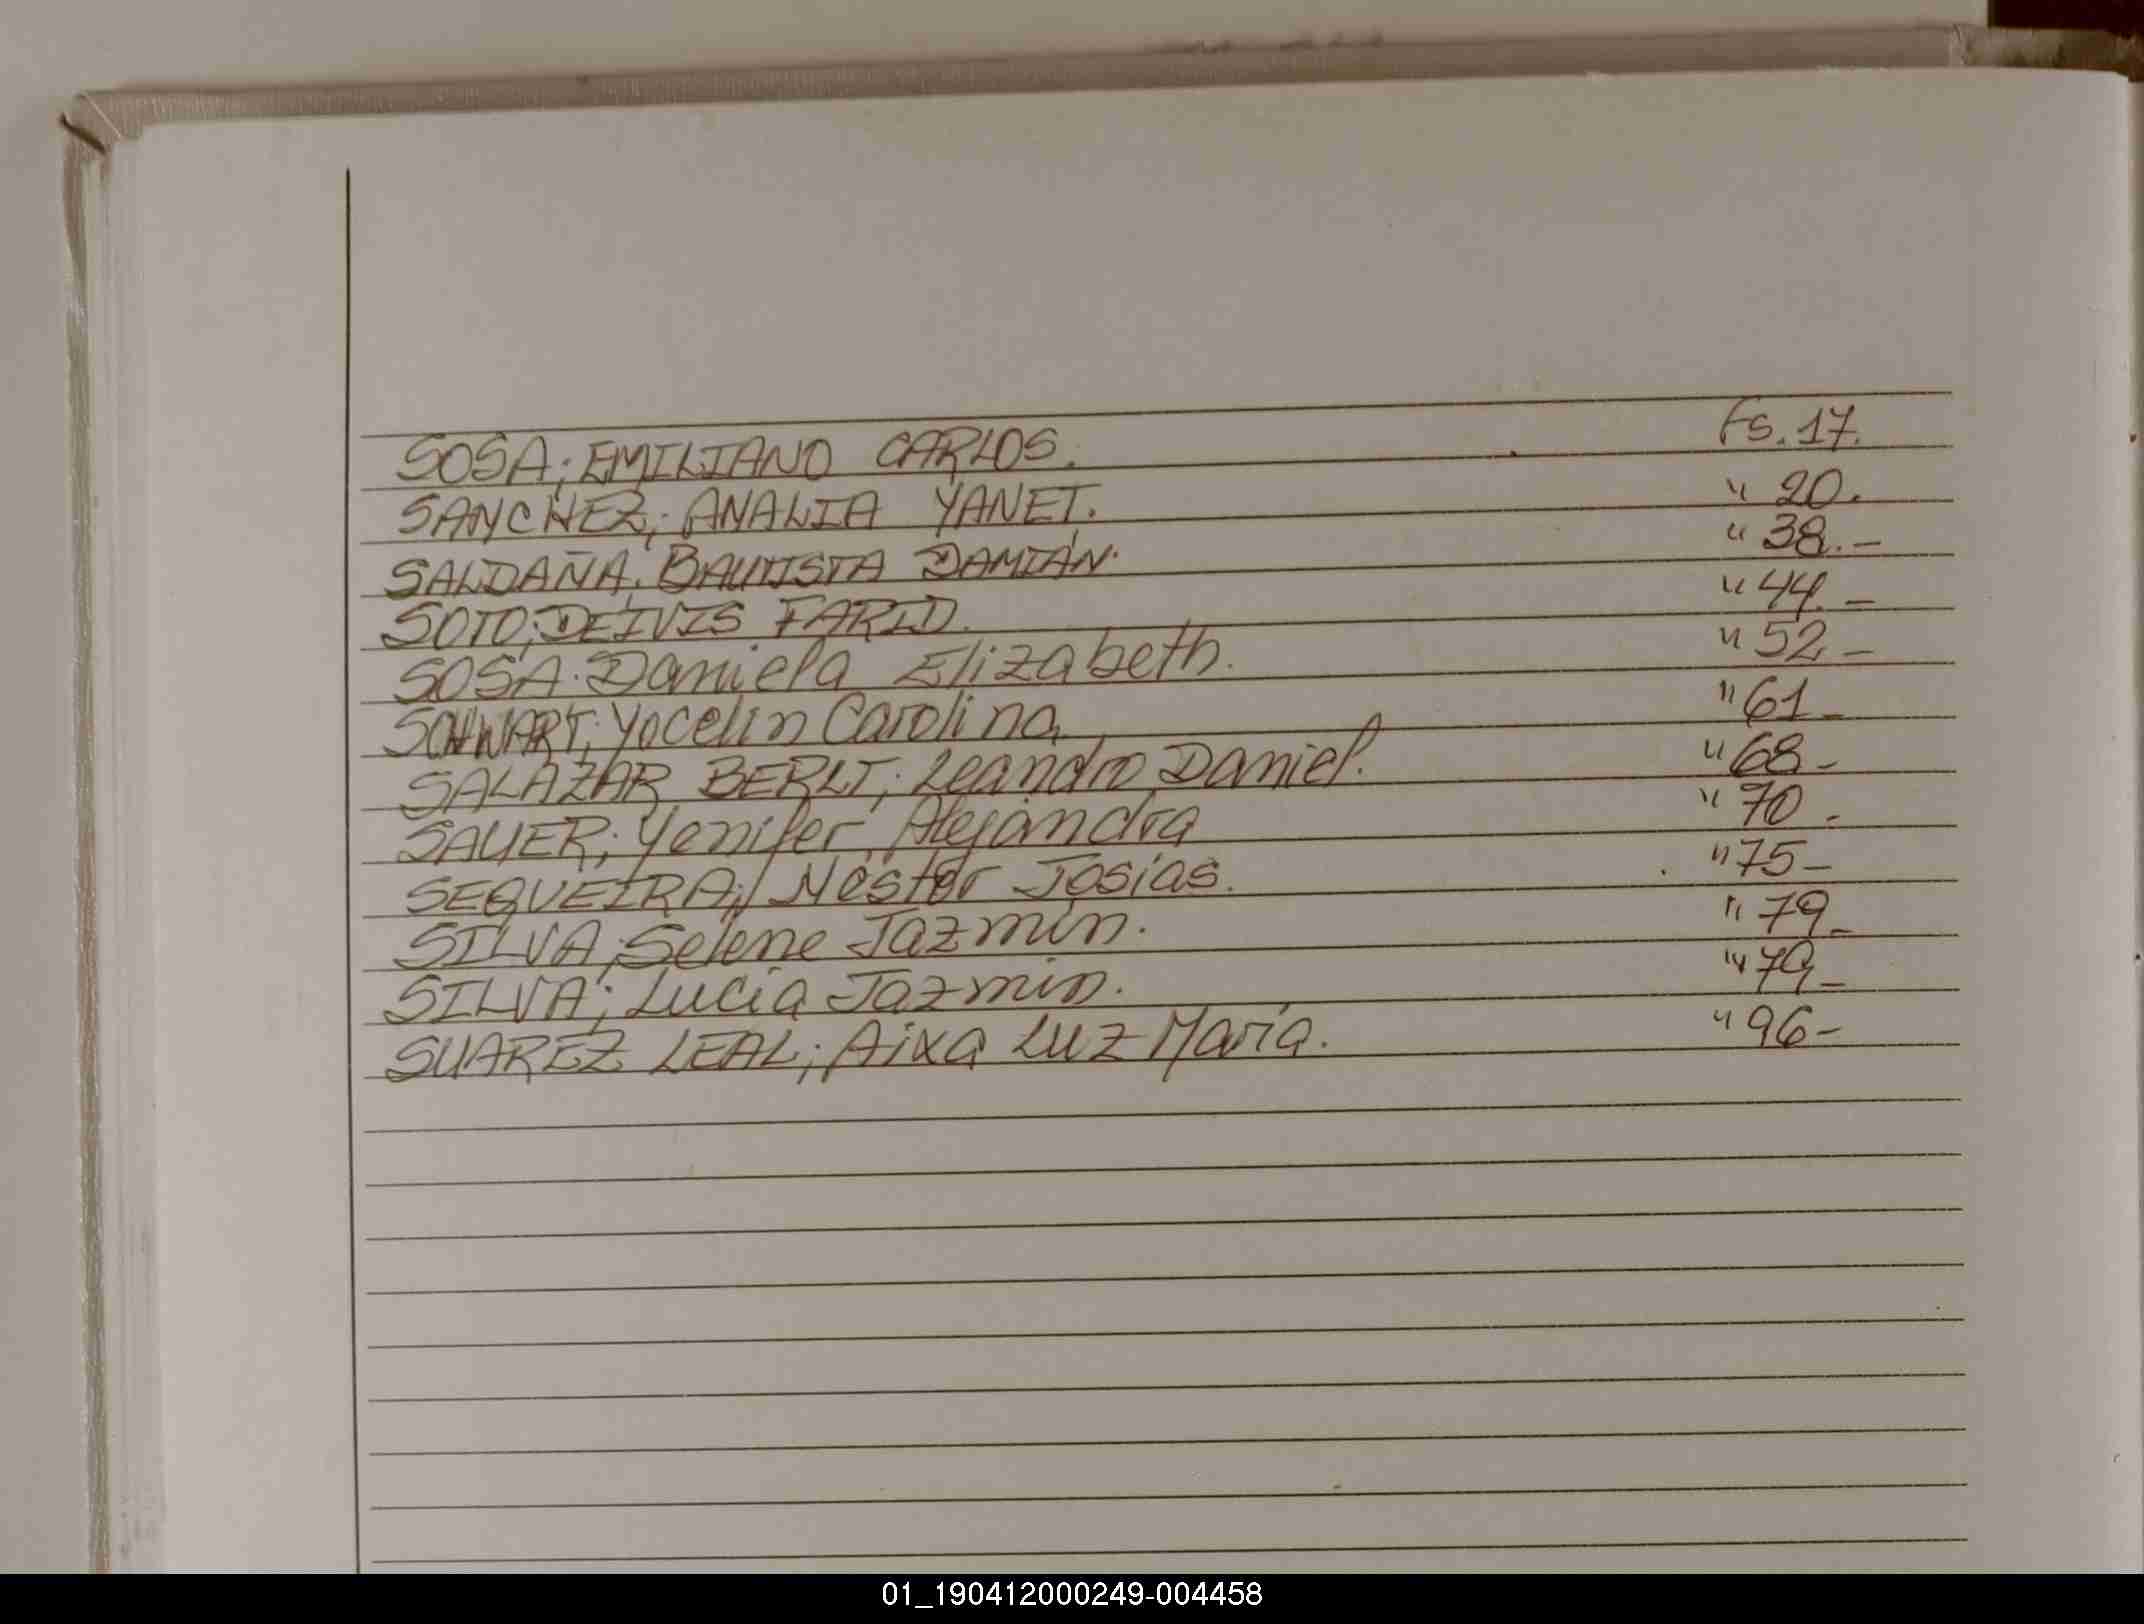 SOSA; EMILIANO CARLOS. Fs. 17.
SANCHEZ; ANALIA YANET. " 20.
SALDAÑA; BAUTISTA DAMIÁN. " 38.-
SOTO; DEIVIS FARID. " 44.-
SOSA. Daniela Elizabeth. " 52-
SCHWART; Yocelin Carolina " 61-
SALAZAR BERLT; Leandro Daniel. " 68-
SAUER; Yenifer Alejandra " 70.-
SEQUEIRA; Néstor Josías. " 75-
SILVA; Selene Jazmín. " 79-
SILVA; Lucía Jazmin. " 79-
SUAREZ LEAL; Aixa Luz María. " 96-
01_190412000249-004458